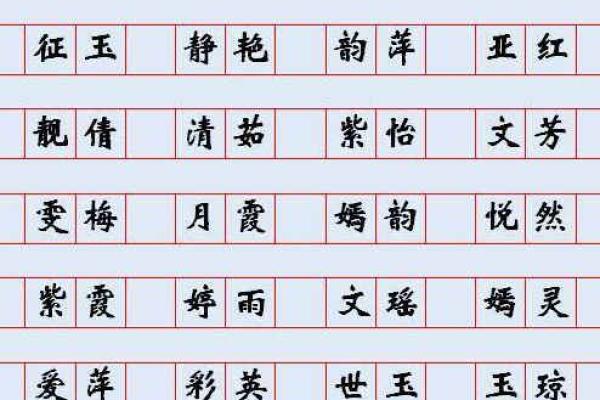 征玉 静艳 韵萍 亚红
靓倩 清茹 紫怡 文芳
雯梅 月霞 嫣韵 悦然
紫霞 婷雨 文瑶 嫣灵
爱萍 彩英 世玉 玉琼